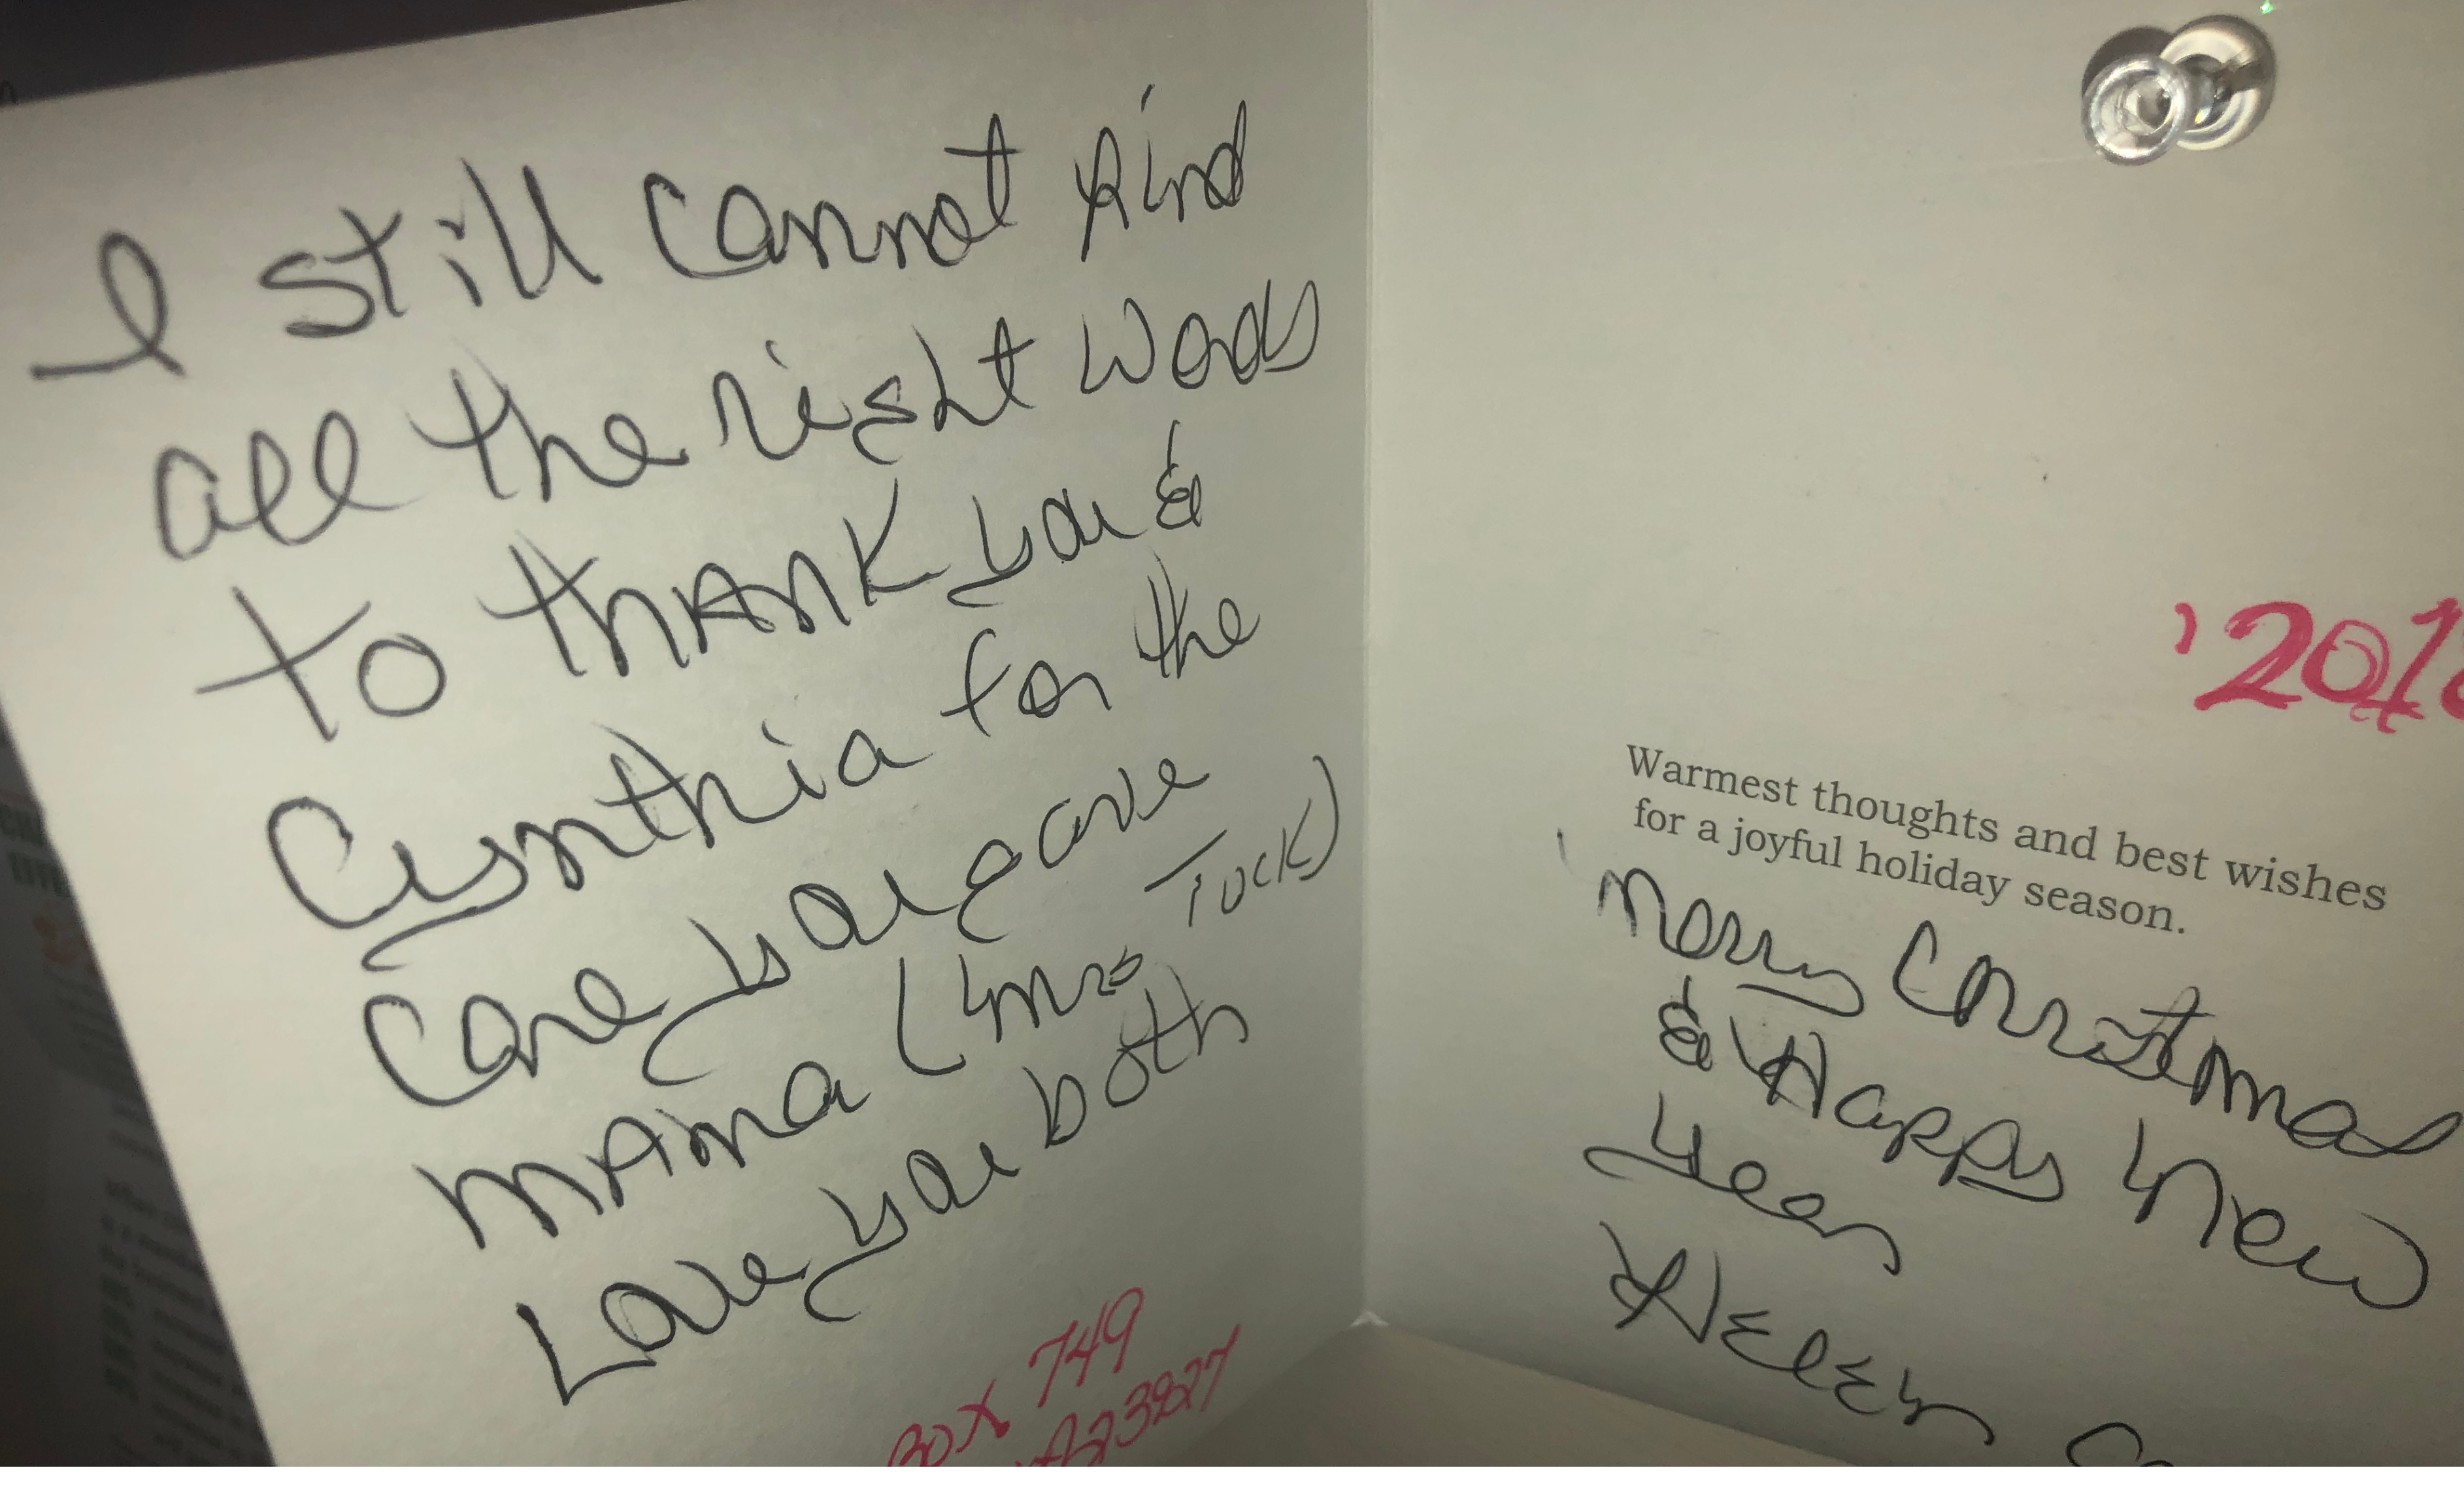 I still cannot find
all the right words
to thank you &
Cynthia for the
care you gave
mama (mrs Tuck)
Love you both
Box 749
23827
'201
Warmest thoughts and best wishes
for a joyful holiday season.
Merry Christmas
& Happy New
Year
Helen